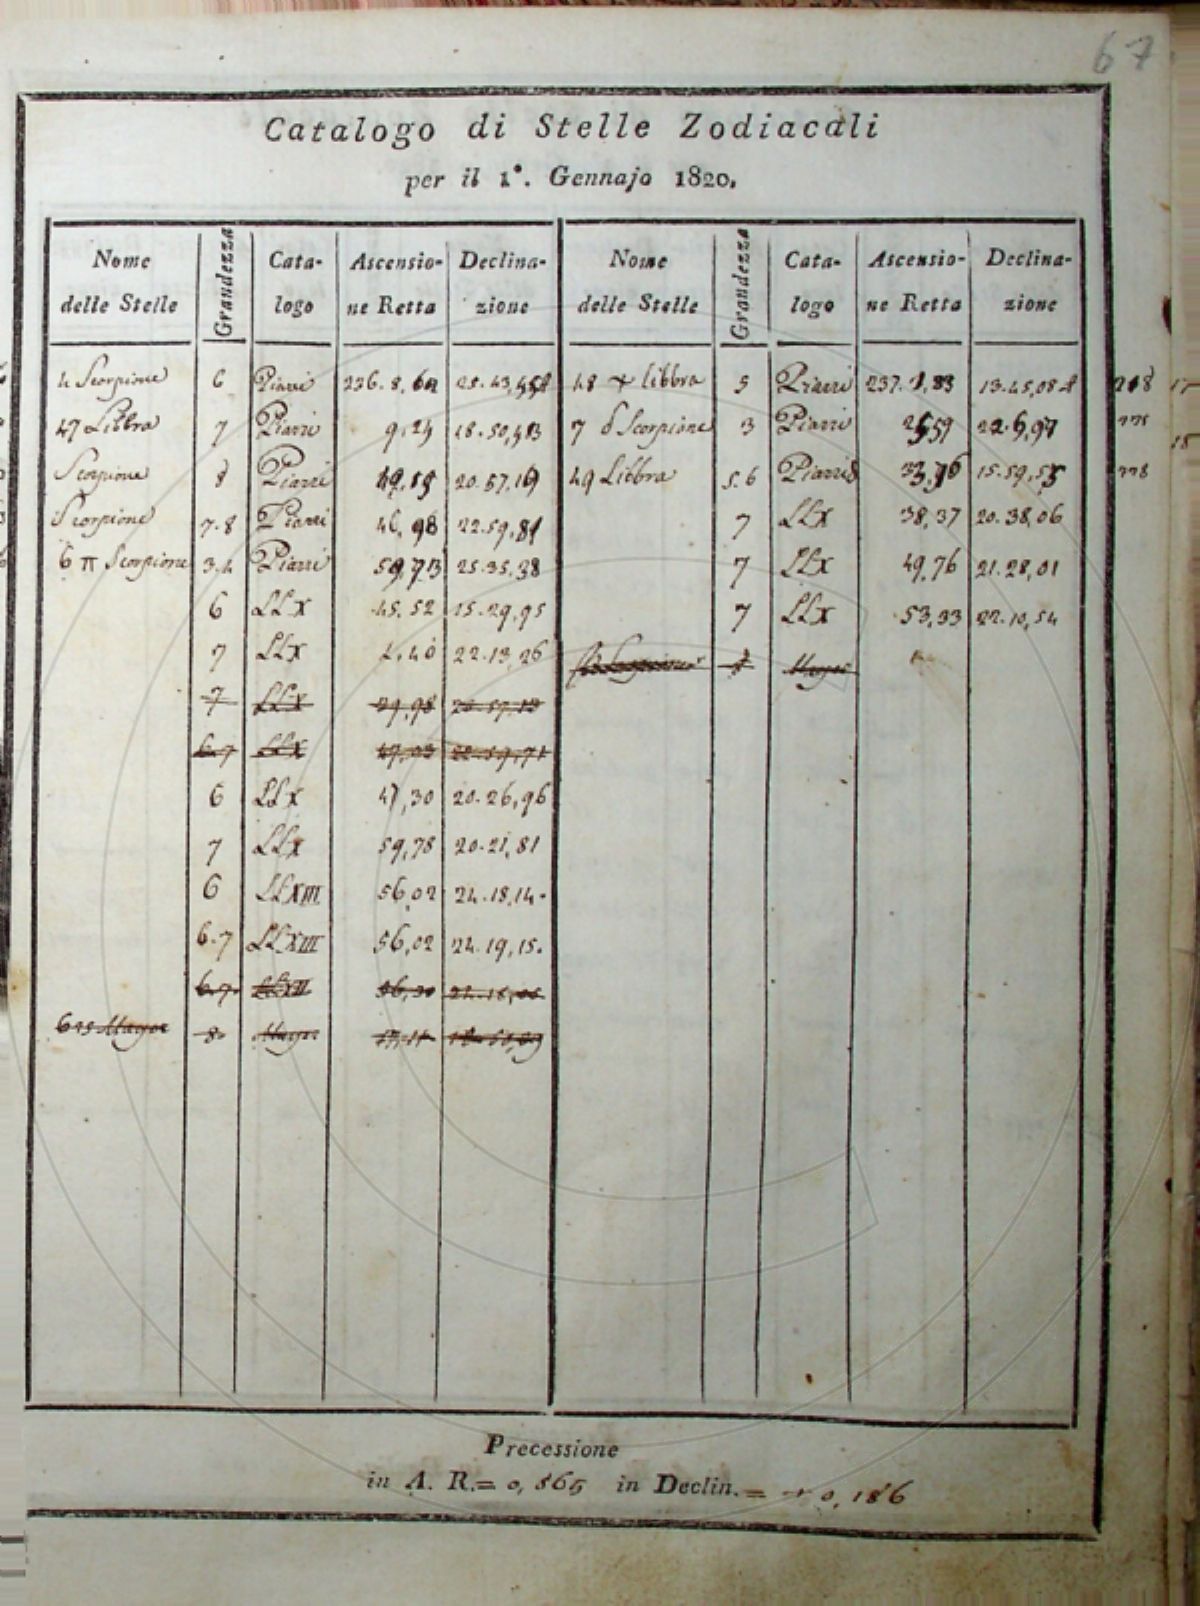 67
Catalogo di Stelle Zodiacali
per il 1°. Gennajo 1820.
Nome delle Stelle Grandezza Cata-logo Ascensio-ne Retta Declina-zione Nome delle Stelle Grandezza Cata-logo Ascensio-ne Retta Declina-zione
4 Scorpione 6 Piazzi 236. 8, 25. 43, 48 libbra 5 Piazzi 237. 13. 45, 08
47 Libbra 7 Piazzi 9,24 18. 50, 7 δ Scorpione 3 Piazzi 22. 6, 97
Scorpione 8 Piazzi 49,59 20. 57, 19 49 Libbra 5.6 Piazzi 15. 59, 778
Scorpione 7.8 Piazzi 46, 98 22. 59, 81 7 LLX 38, 37 20. 38, 06
6 π Scorpione 3.4 Piazzi 59,73 25. 35, 38 7 LLX 49, 76 21. 28, 01
6 LLX 45. 52 15. 29, 95 7 LLX 53, 93 22. 10, 54
7 LLX 4. 40 22. 13, 26 Mayer
7 LLX 29, 98 20. 57, 12
6.7 LLX 47, 03 22. 59, 71
6 LLX 47, 30 20. 26, 96
7 LLX 59, 78 20. 21, 81
6 LLXIII 56, 02 24. 18, 14.
6.7 LLXIII 56, 02 24. 19, 15.
6.7. LLXII 56, 30
615 Mayer 8. Mayer
Precessione
in A. R. = 0, 865 in Declin. = + 0, 186